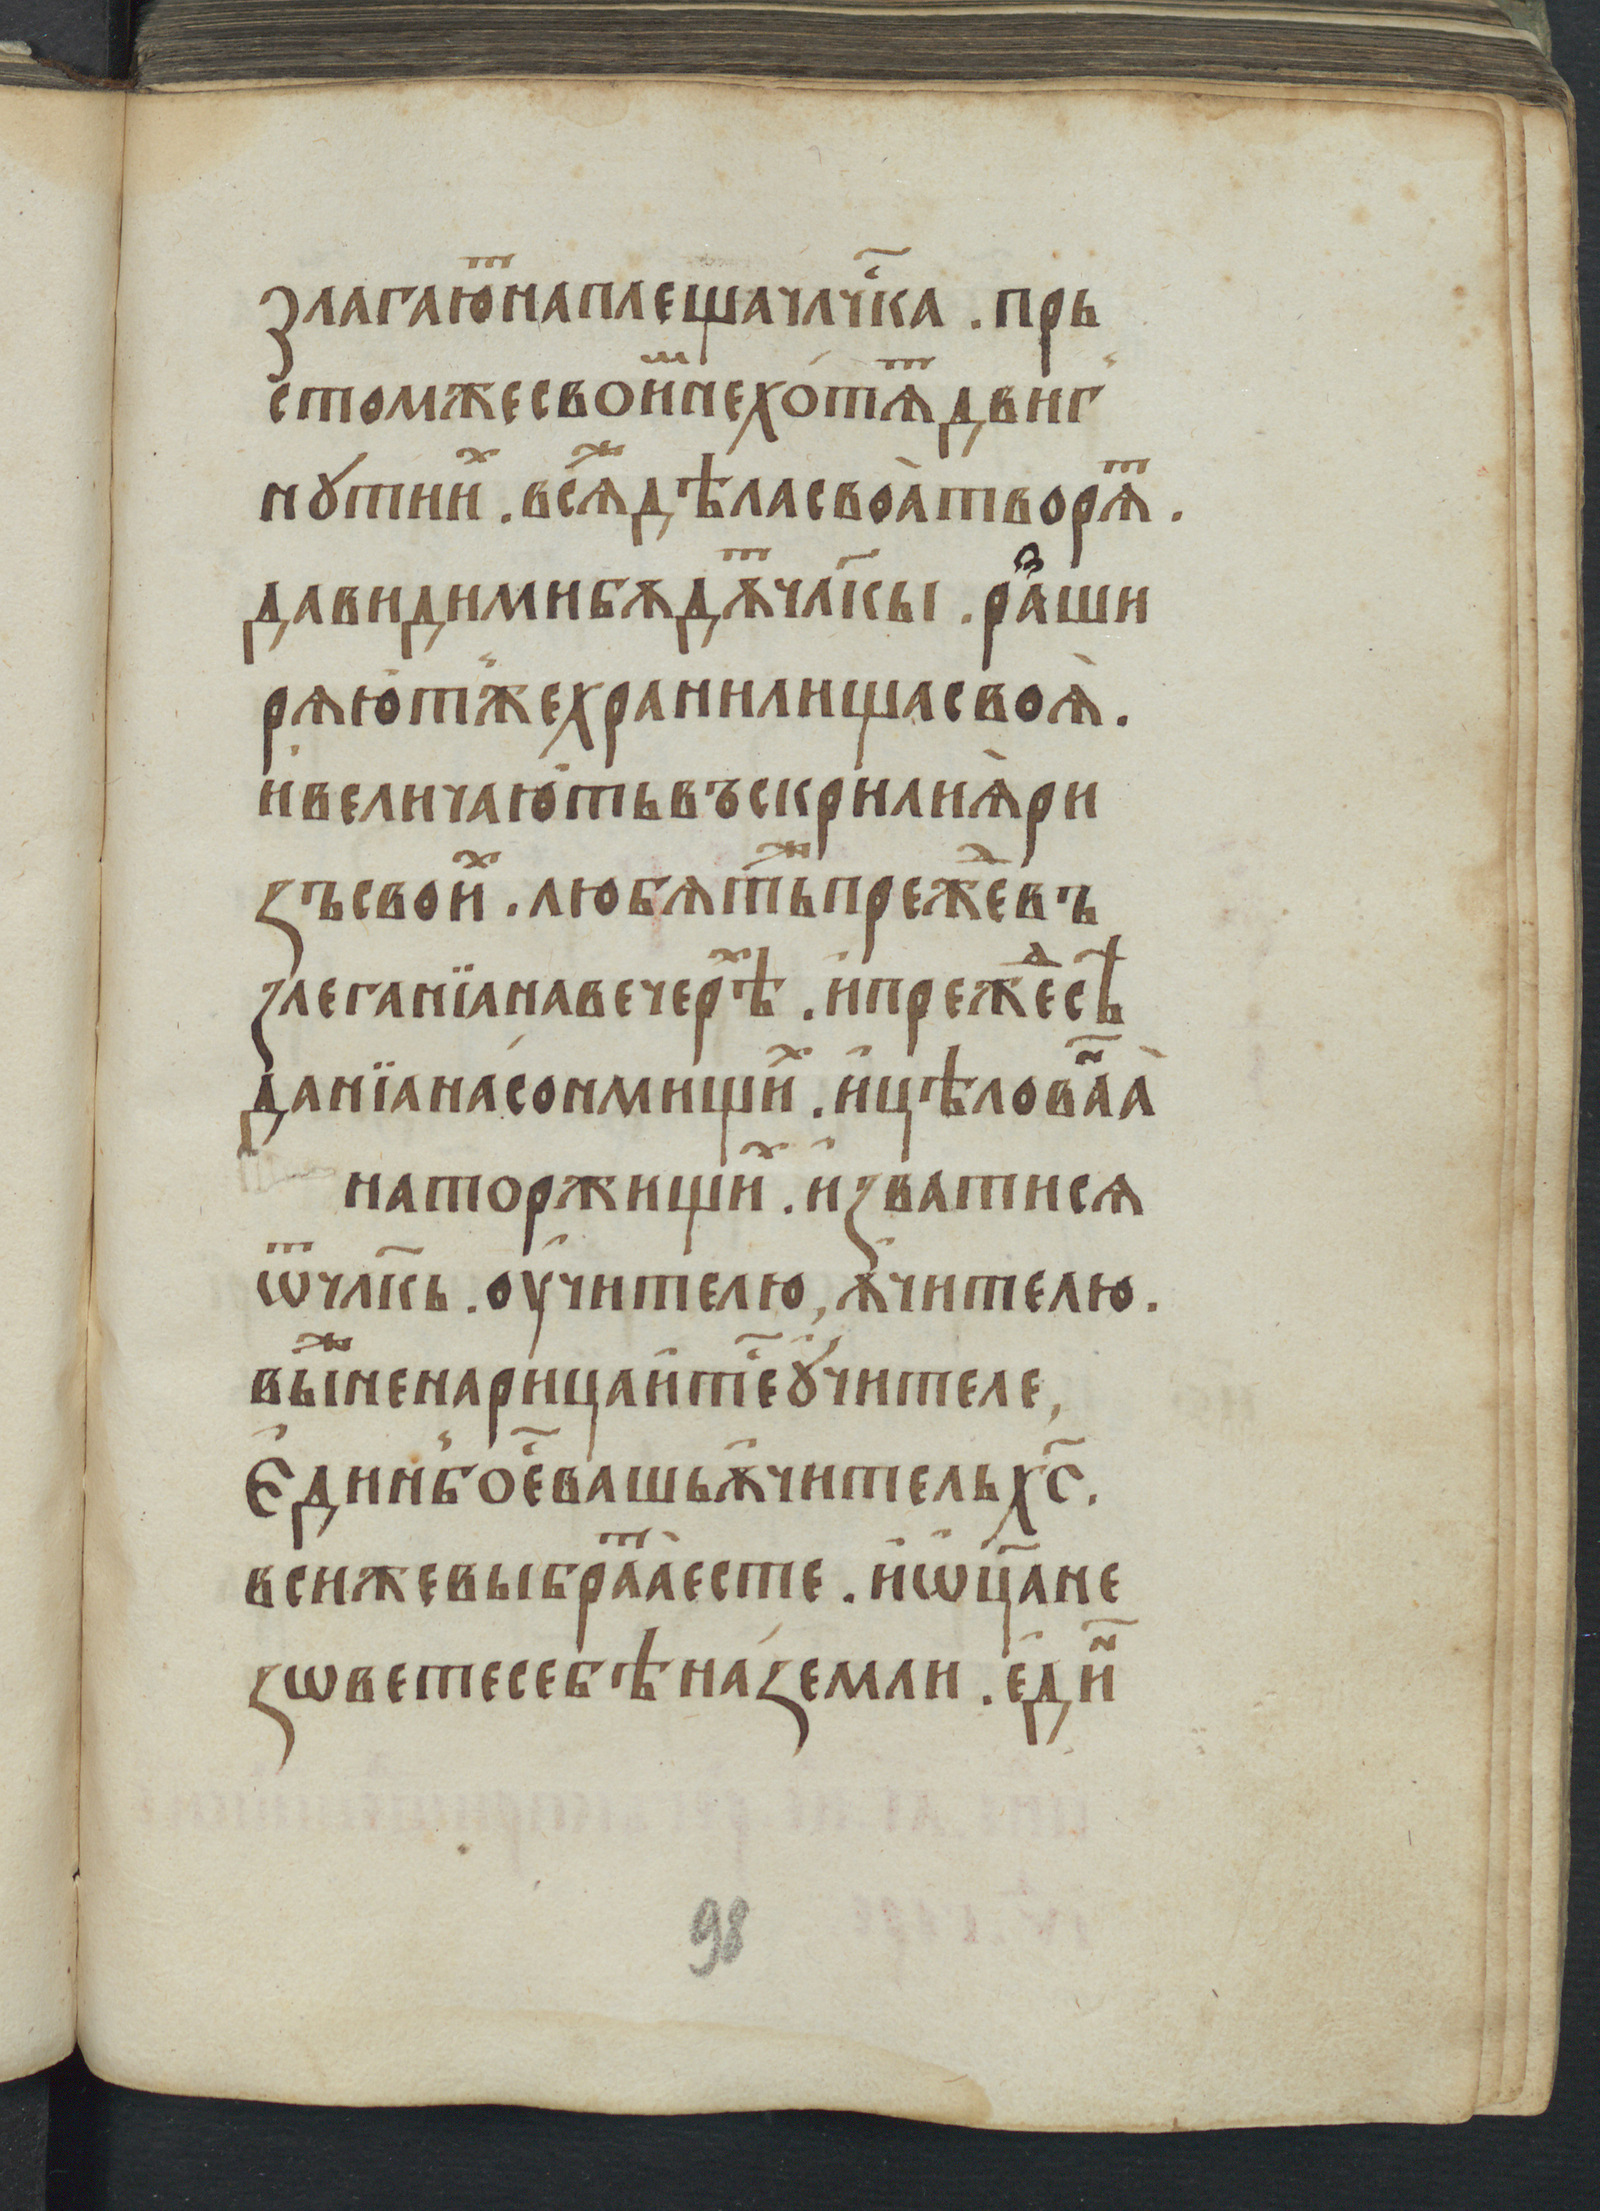 злагаю́ⷮнаплещачлч҃ⷭка . прь
стомжесвоиⷨнехо́тѧⷮдвиг
нꙋтииⷯ . всѧⷤдѣласвоа̀творѧⷮ .
давидимибѫдѫⷮчлк҃ы . раⷥши
рѧю́тⸯжехранилищасвоѧ̀ .
и҆величаю́тьвъскрилиѧ̀ри
зъсвоиⷯ . любѧтьⷤпрежеⷣвъ
злеганїанавечерѣⷯ . и҆прежеⷣсѣ
данїана́сонмищиⷯ . и҆цѣлованⷩ҇аа̀
наторжищиⷯ . и҆зватисѧ
ѿчлк҃ь . оу҆чителю , ѫ҆чителю .
выⷤненарицаи҆тⷭ҇еꙋ҆чителе ,
Є҆динⸯбое҆ⷭ҇вашьѫ҆чительхс҃ .
всижевыбраⷮа̀есте . и҆ѡ҆ц҃ане
зѡветесебѣна́земли . е҆диⷩ҇
98